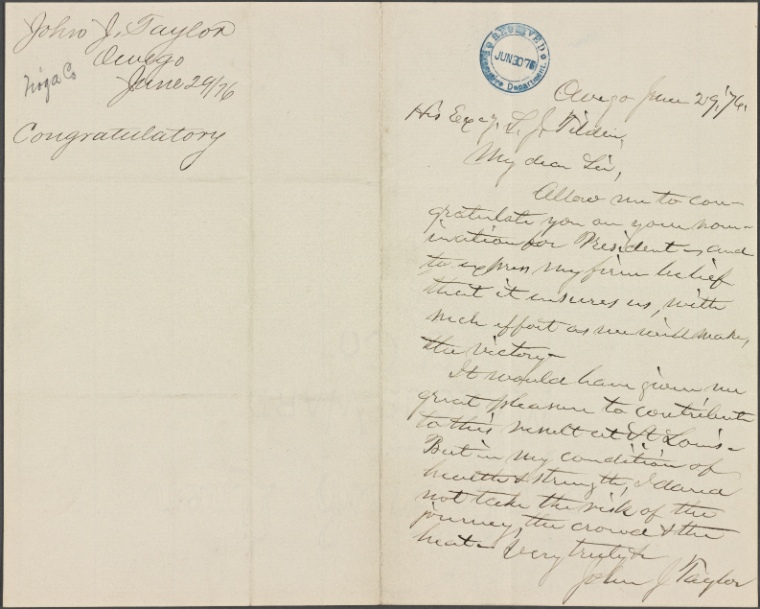 John J. Taylor
Owego
Tioga Co
June 29/76
Congratulatory
RECEIVED
JUN 30 76
Executive Department.
Owego June 29, '76.
His Excy. S. J. Tilden,
My dear Sir,
Allow me to con-
gratulate you on your nom-
ination for President - and
to express my firm belief
that it ensures us, with
such effort as we will make,
the victory -
It would have given me
great pleasure to contribute
to this result at St Louis -
But in my condition of
health & strength, I dared
not take the risk of the
journey, the crowd & the
heat - Very truly &c
John J Taylor